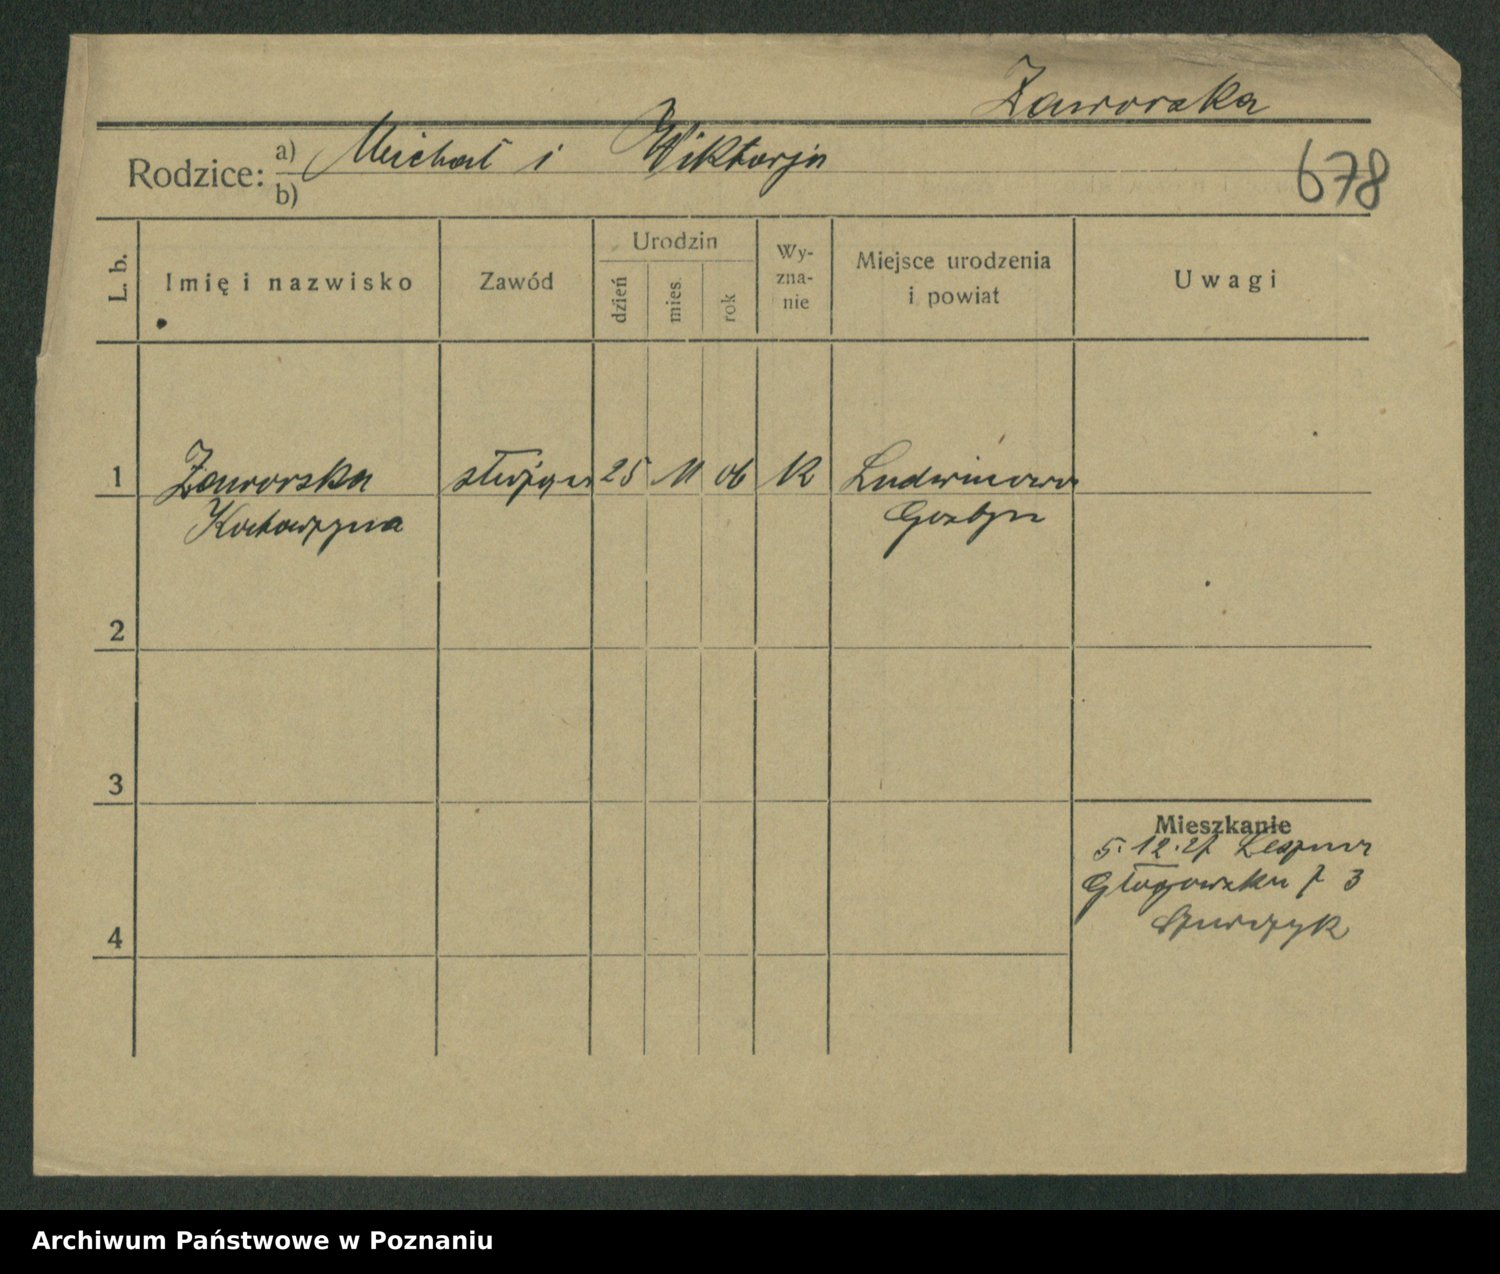 Zaworska
Rodzice: a) Michał i Wiktorja
b)
678
L. b.
Imię i nazwisko
Zawód
Urodzin
dzień
mies.
rok
Wy-
zna-
nie
Miejsce urodzenia
i powiat
Uwagi
1 Zaworska służąca 25 11 06 K Ludwinowo
Katarzyna Gostyn
2
3
Mieszkanie
5.12.27 Leszno
Głogowska 3
4
Archiwum Państwowe w Poznaniu